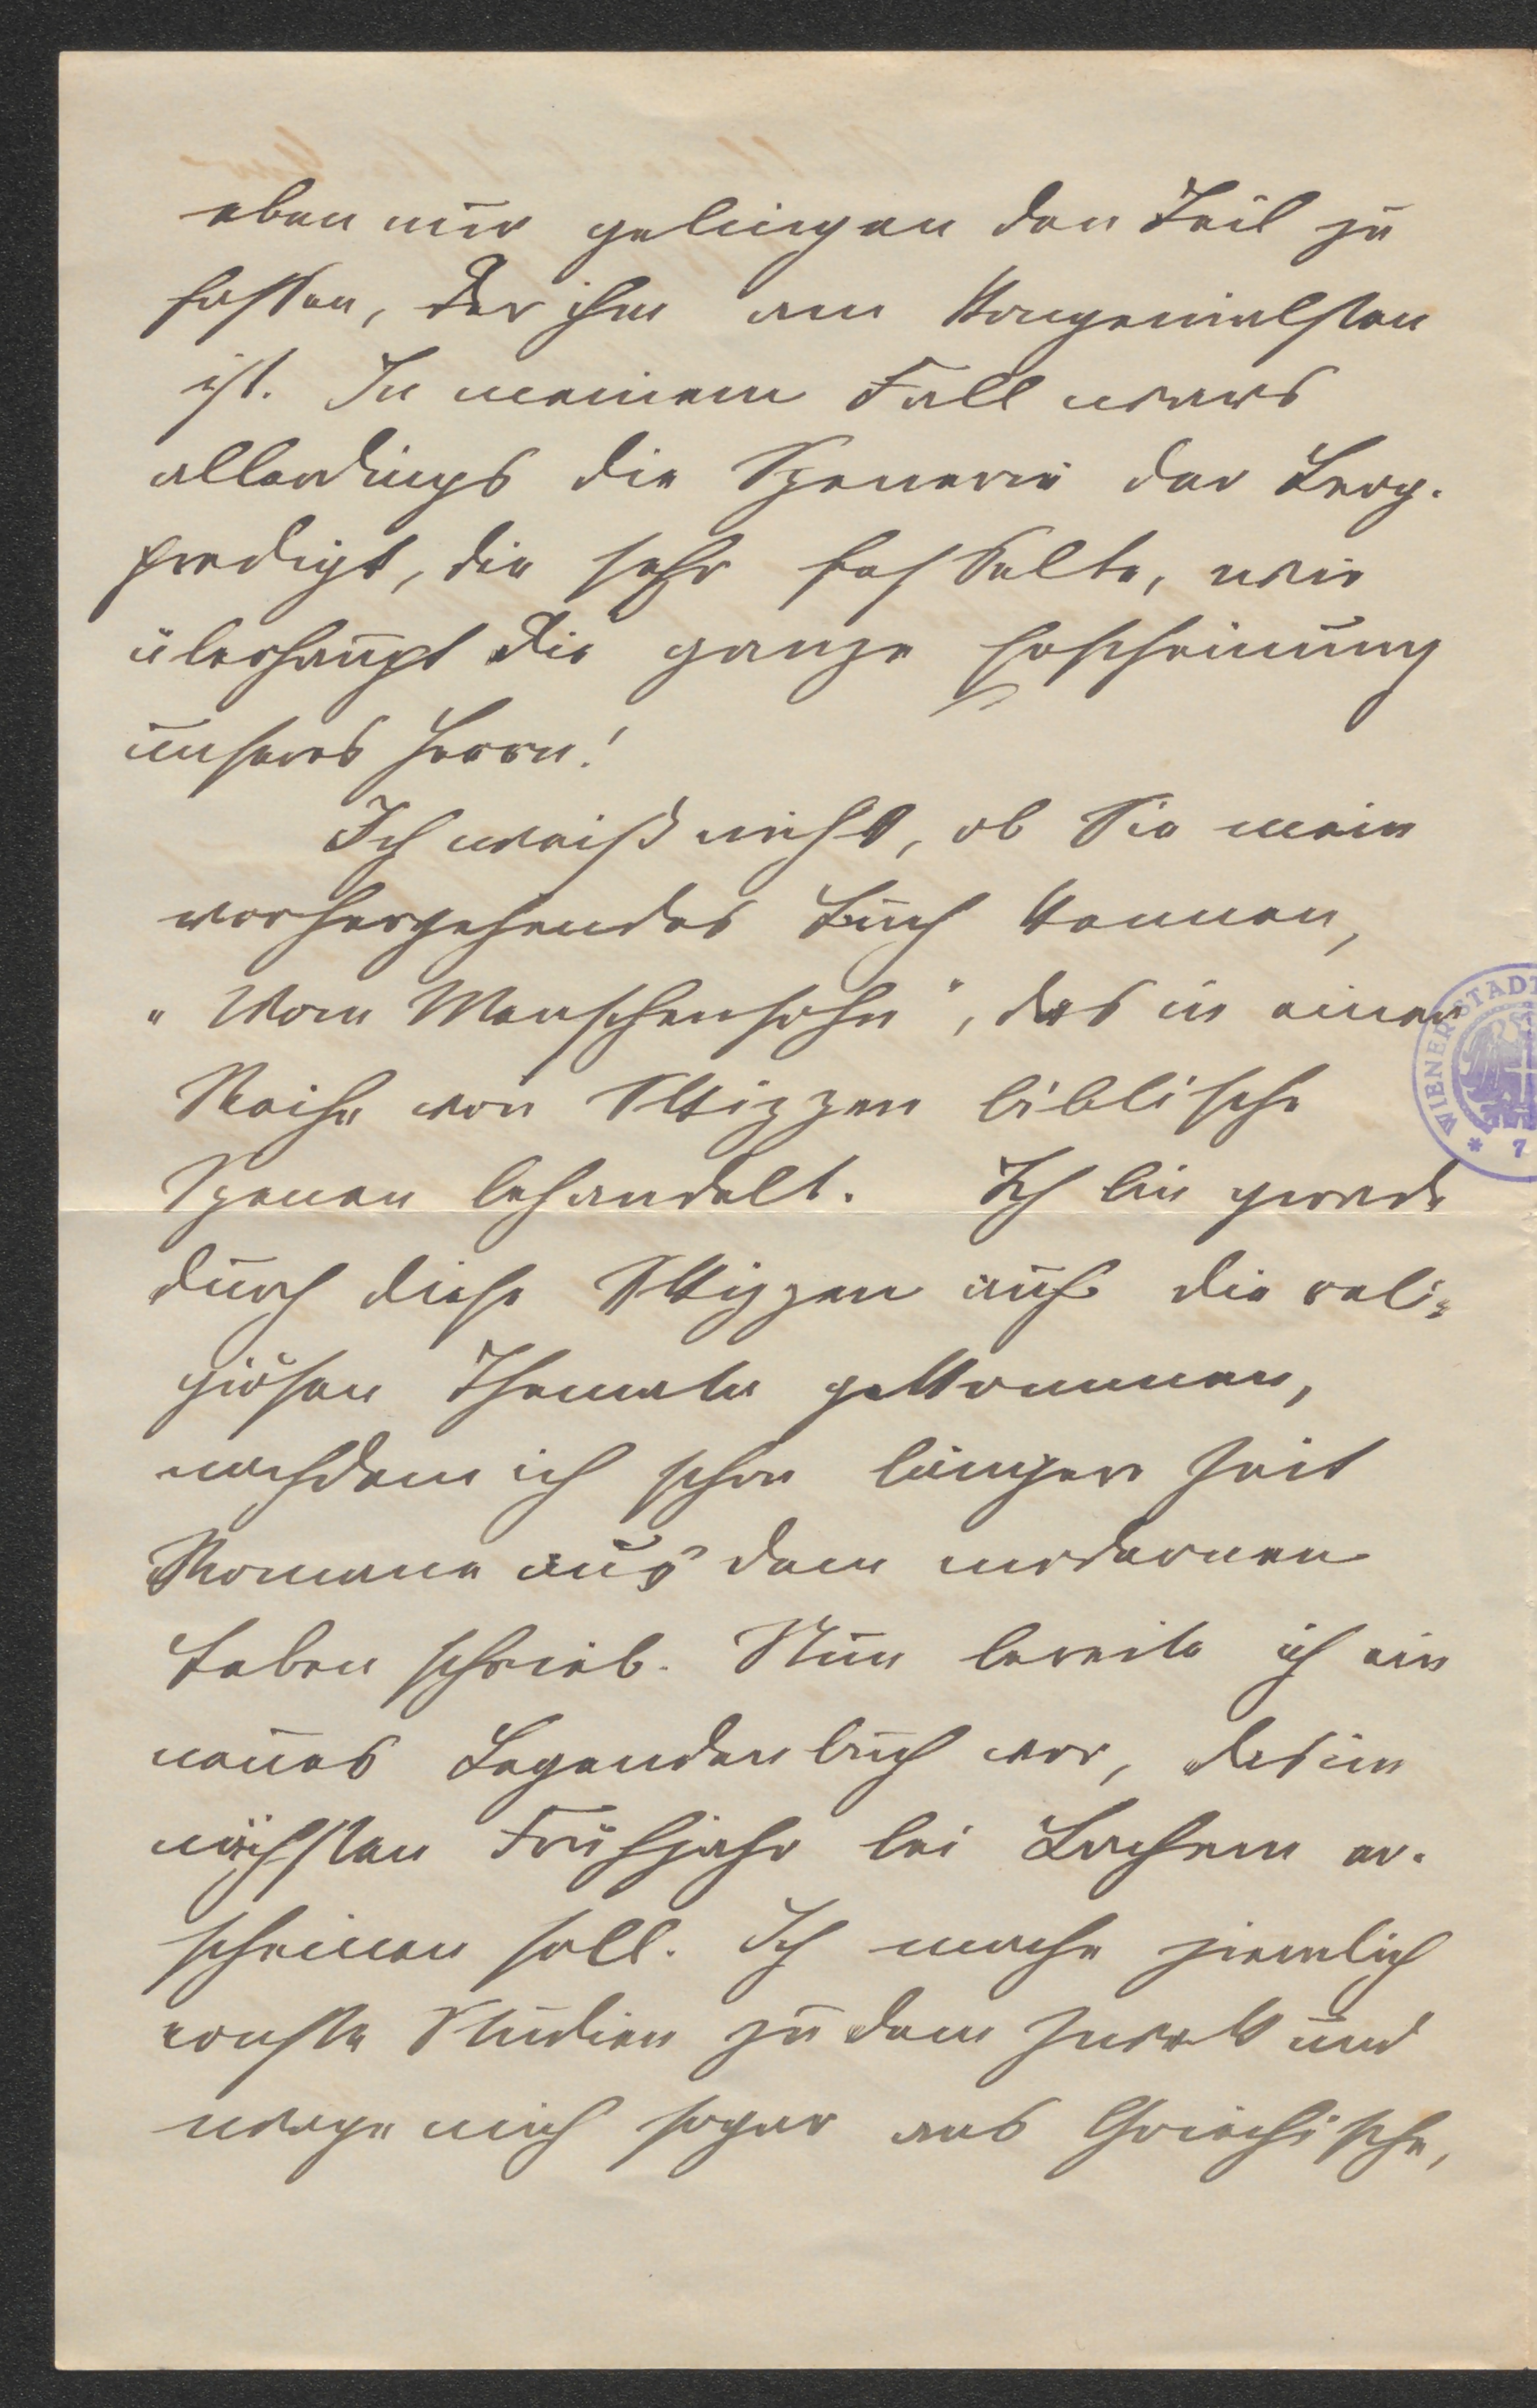 eben nur gelingen den Teil zu
fassen, der ihm am kongenialsten
ist. In meinem Fall wars
allerdings die Szenerie der Berg-
predigt, die sehr fesselte, wie
überhaupt die ganze Erscheinung
unseres Herrn!
Ich weiß nicht, ob Sie mein
vorhergehendes Buch kennen,
"Vom Menschensohn", das in einer
Reihe von Skizzen biblische
Szenen behandelt. Ich bin gerade
durch diese Skizzen auf die reli-
giösen Themata gekommen,
nachdem ich schon längere Zeit
Romane aus dem modernen
Leben schrieb. Nun bereite ich ein
neues Legendenbuch vor, das im
nächsten Frühjahr bei Bachem er-
scheinen soll. Ich mache ziemlich
ernste Studien zu dem Zweck und
wage mich sogar ans Griechische,
WIENER STADT
* 7